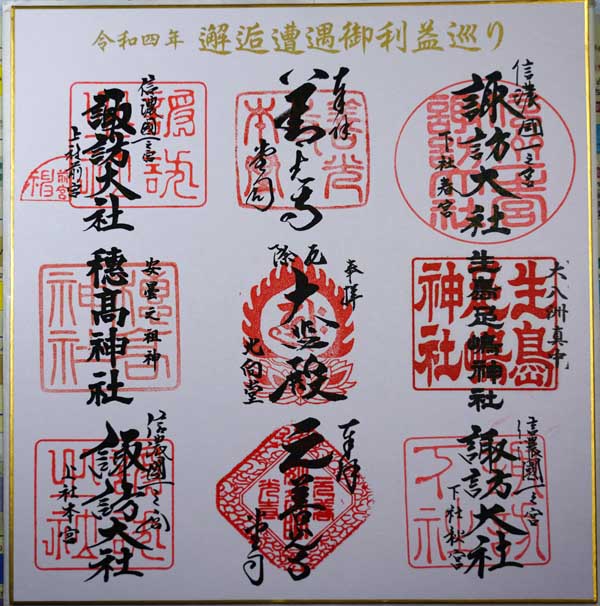 令和四年 邂逅遭遇御利益巡り
信濃國一之宮
諏訪大社
下社春宮
奉拝
善光寺
堂司
信濃國一之宮
諏訪大社
上社前宮
大八洲真中
生島足嶋神社
生島足嶋神社
奉拝
元
大
殿
北向堂
安曇元祖神
穗髙神社
信濃國一之宮
諏訪大社
下社秋宮
奉拝
元善光寺
堂司
信濃國一之宮
諏訪大社
上社本宮